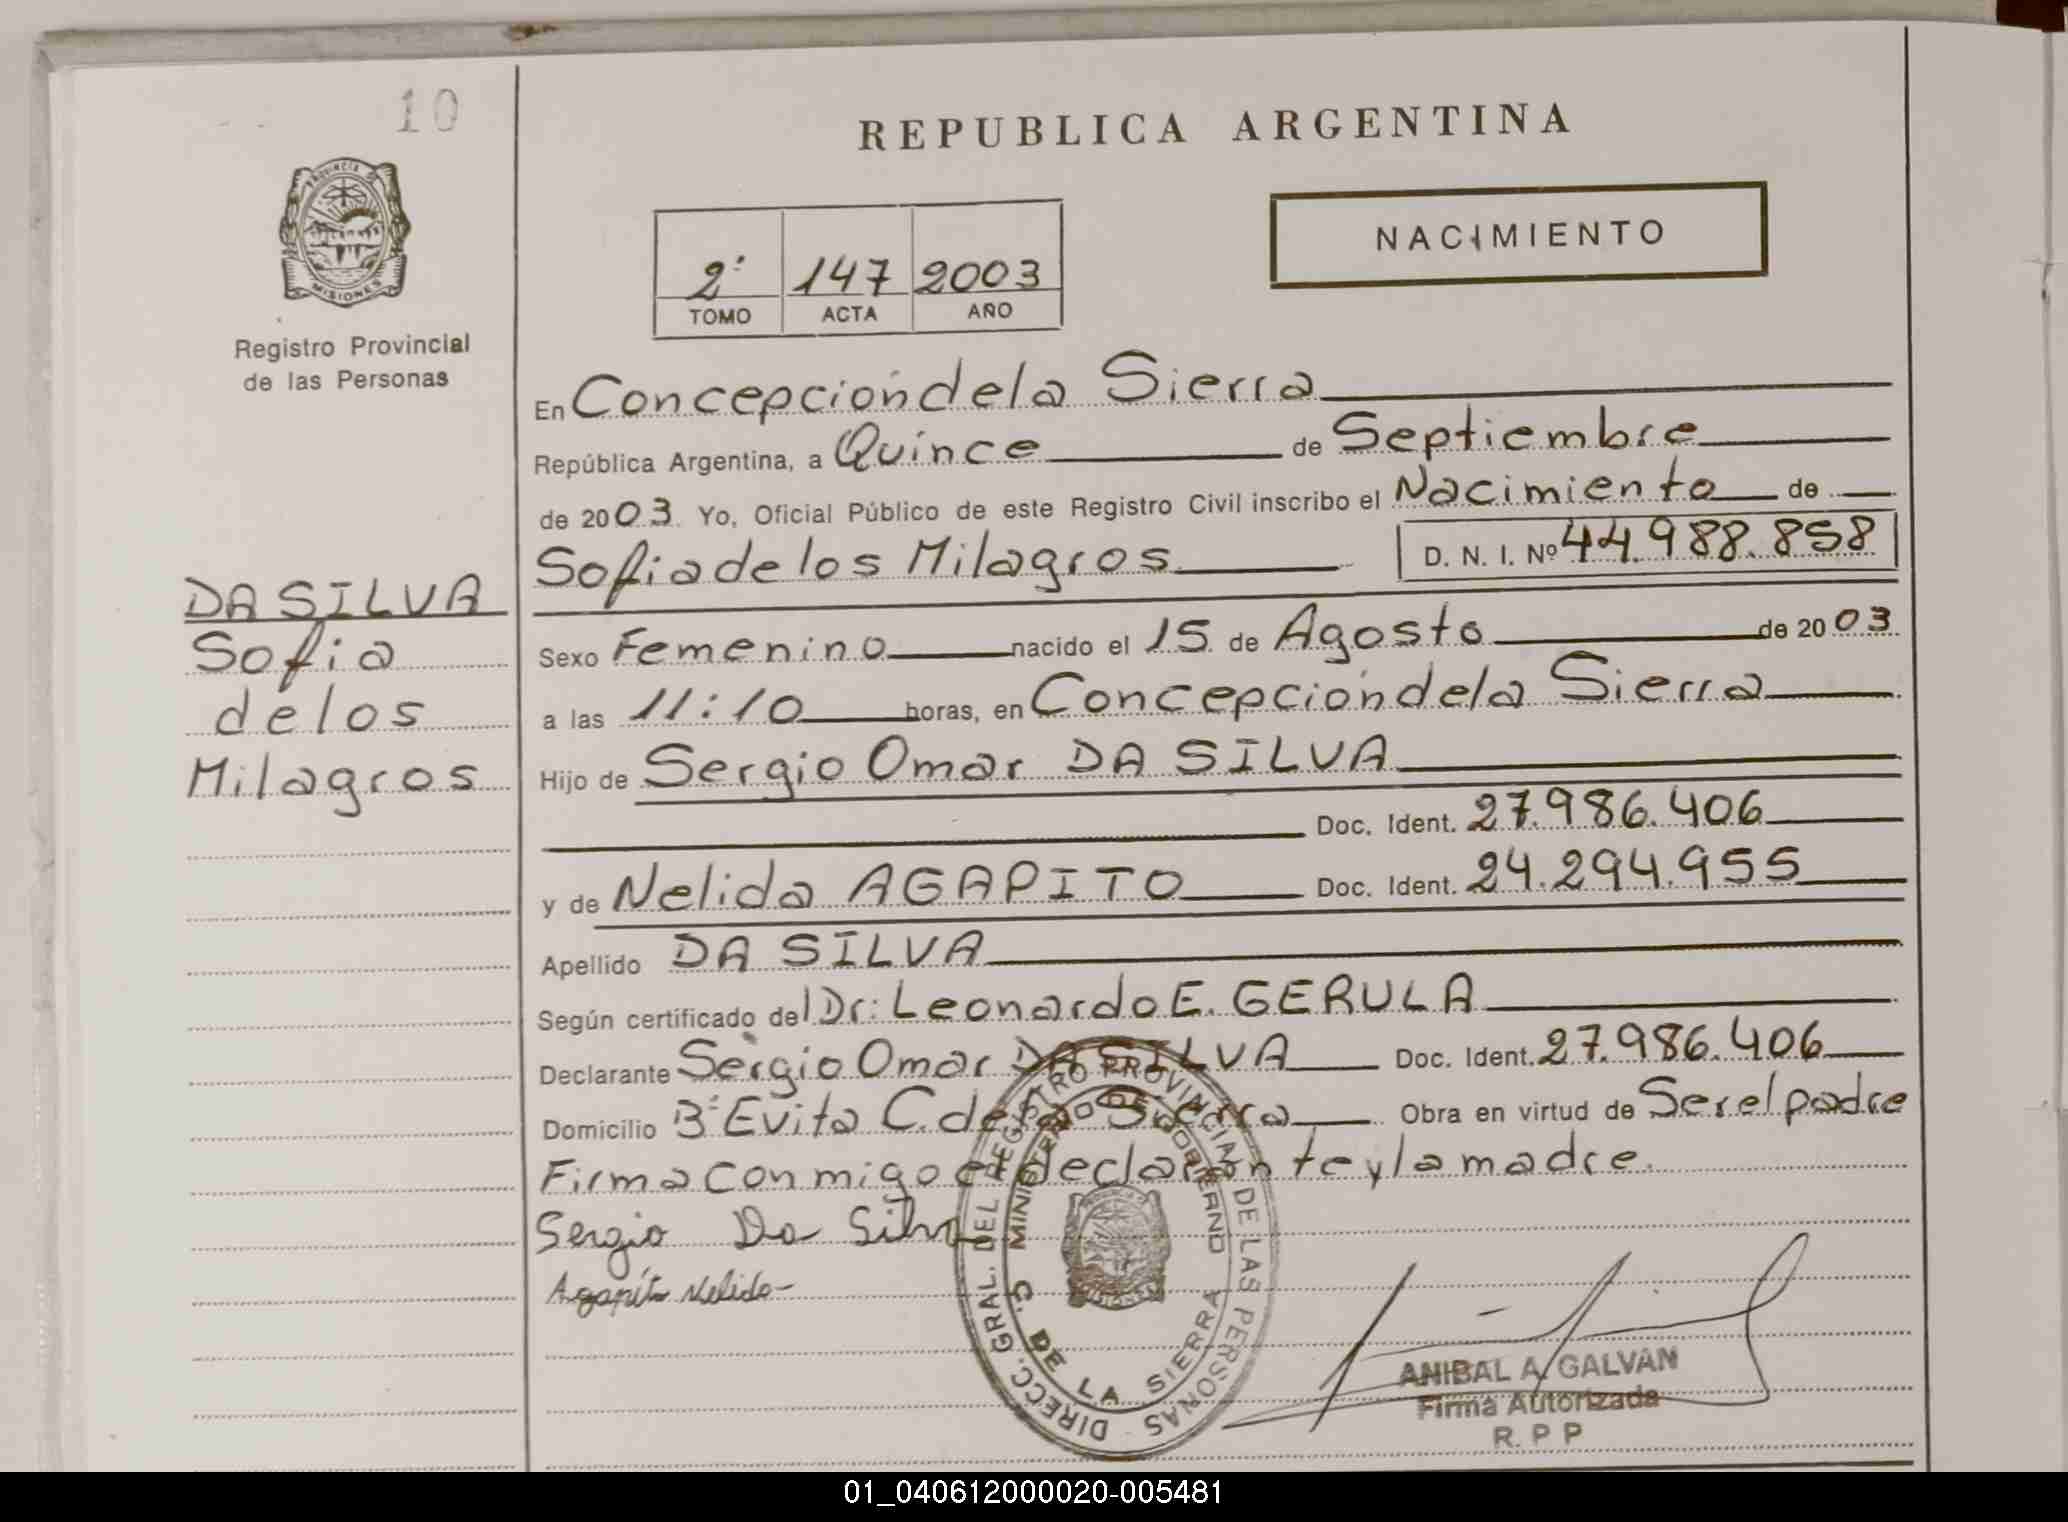 10
PROVINCIA DE
MISIONES
Registro Provincial
de las Personas
DA SILVA
Sofia
de los
Milagros
REPUBLICA ARGENTINA
NACIMIENTO
2º 147 2003
TOMO ACTA AÑO
En Concepción de la Sierra
República Argentina, a Quince de Septiembre
de 2003 Yo, Oficial Público de este Registro Civil inscribo el Nacimiento de
Sofia de los Milagros D. N. I. Nº 44.988.858
Sexo Femenino nacido el 15 de Agosto de 2003
a las 11:10 horas, en Concepción de la Sierra
Hijo de Sergio Omar DA SILVA
Doc. Ident. 27.986.406
y de Nelida AGAPITO Doc. Ident. 24.294.955
Apellido DA SILVA
Según certificado del Dr: Leonardo E. GERULA
Declarante Sergio Omar DA SILVA Doc. Ident. 27.986.406
Domicilio Bº Evita C. de la Sierra Obra en virtud de Ser el padre
Firma conmigo el declarante y la madre.
Sergio Da Silva
Agapito Nelida
DIRECC. GRAL. DEL REGISTRO PROVINCIAL DE LAS PERSONAS
MINISTERIO DE GOBIERNO
C. DE LA SIERRA
MISIONES
ANIBAL A. GALVAN
Firma Autorizada
R. P P
01_040612000020-005481